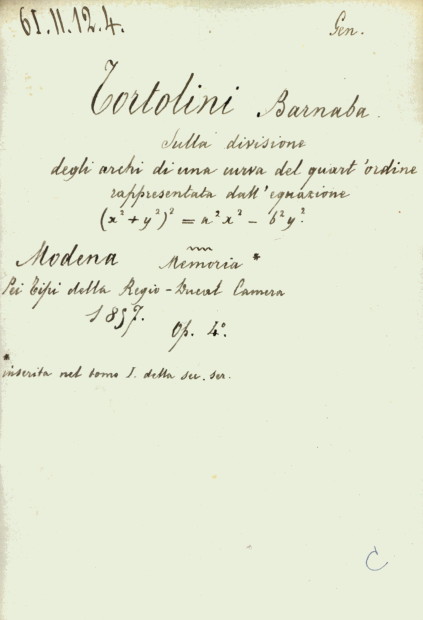 61.11.12.4. Gen.
Tortolini Barnaba.
Sulla divisione
degli archi di una curva del quart'ordine
rappresentata dall'equazione
(x² + y²)² = a²x² - b²y².
Modena Memoria *
Pei Tipi della Regio-Ducal Camera
1857. Op. 4º.
*
inserita nel tomo I. della sec. ser.
C